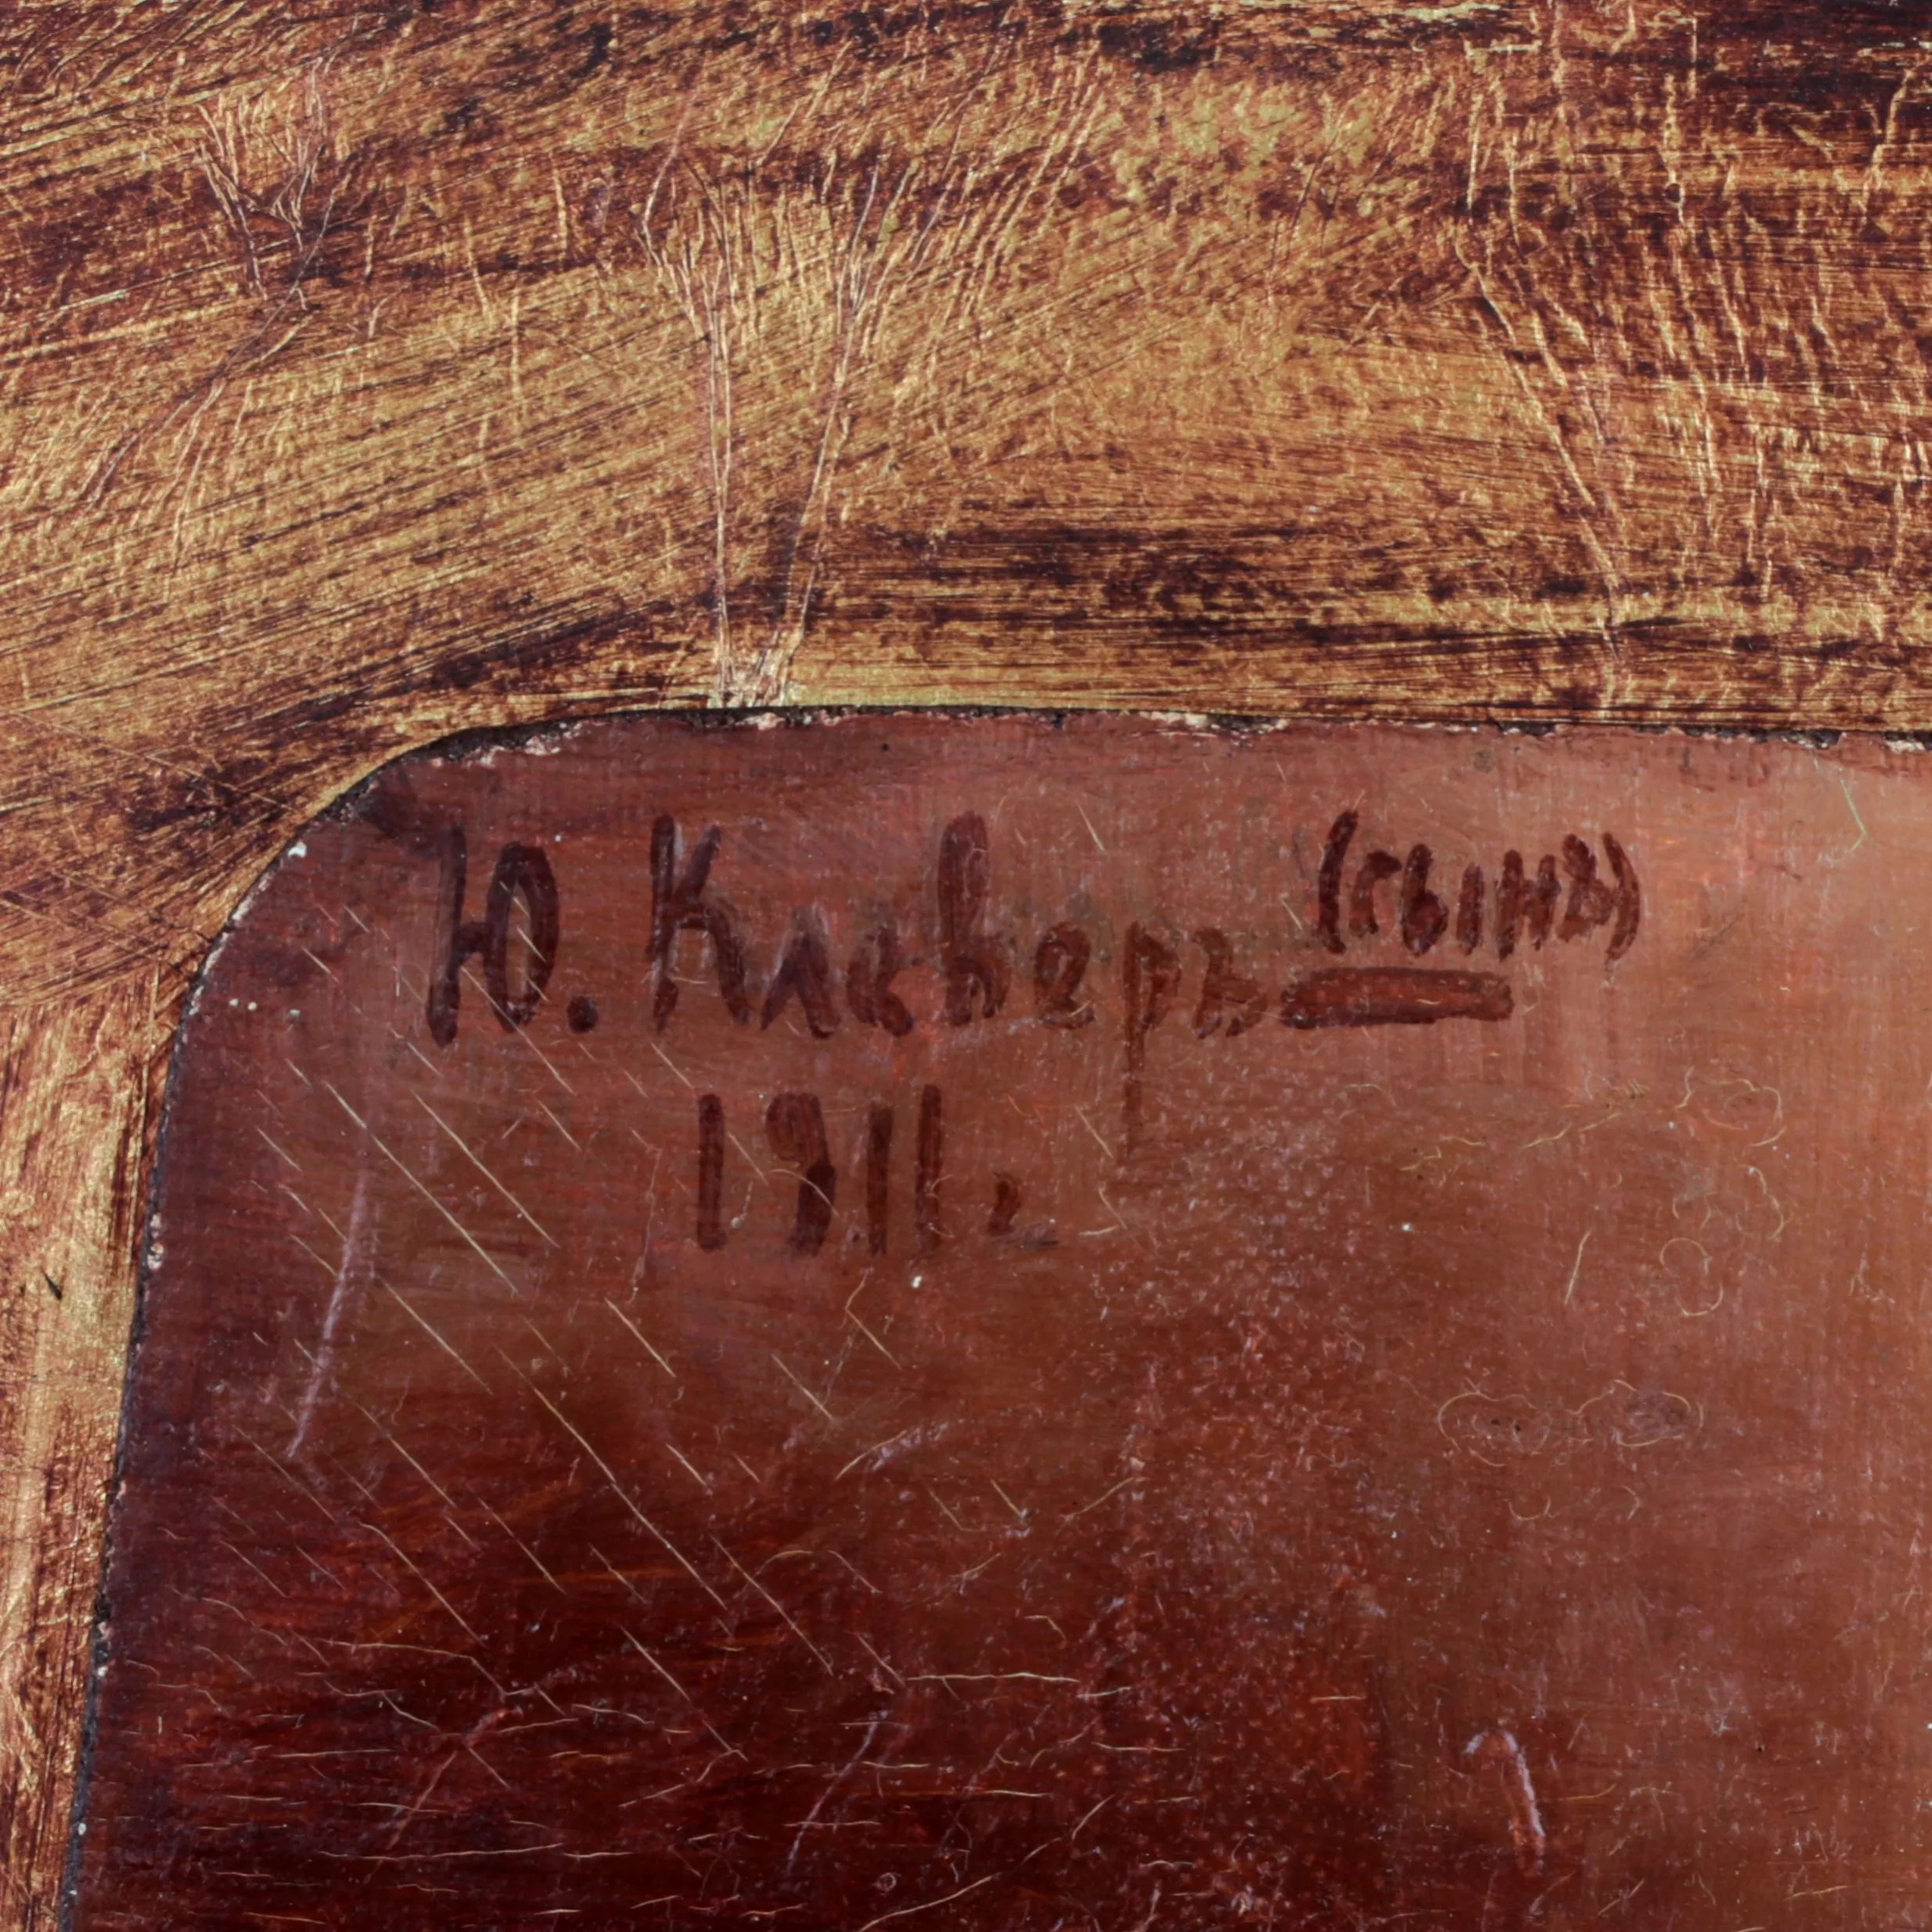 Ю. Клеверъ (сынъ)
1911 г